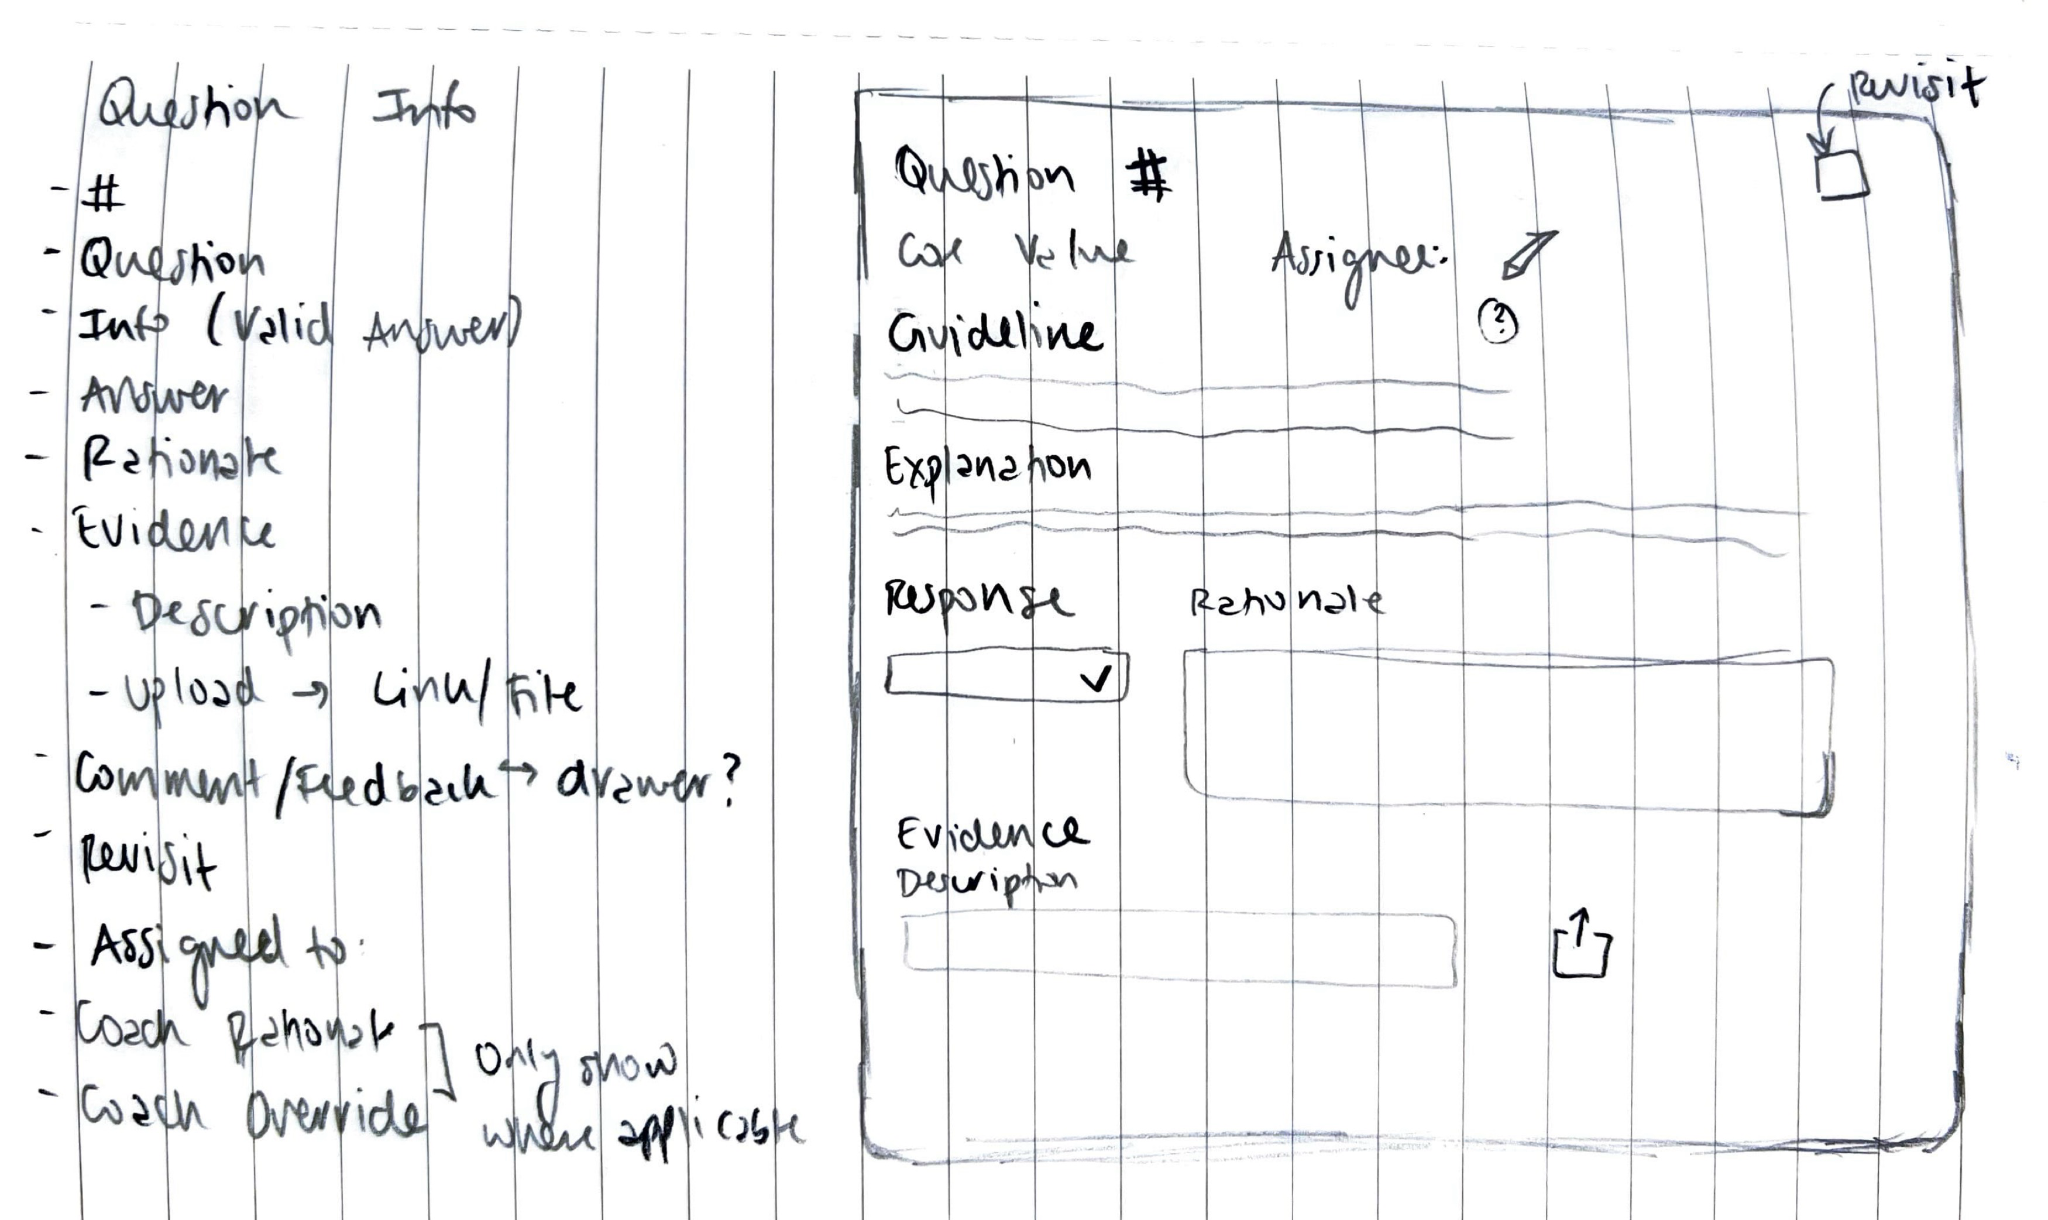 Question Info
- #
- Question
- Info (Valid Answer)
- Answer
- Rationale
- Evidence
- Description
- Upload → Link/File
- Comment/Feedback → drawer?
- Revisit
- Assigned to:
- Coach Rationale
- Coach Override
Only show
where applicable
Revisit
Question #
Core Value Assignee:
Guideline ?
Explanation
Response Rationale
Evidence
Description